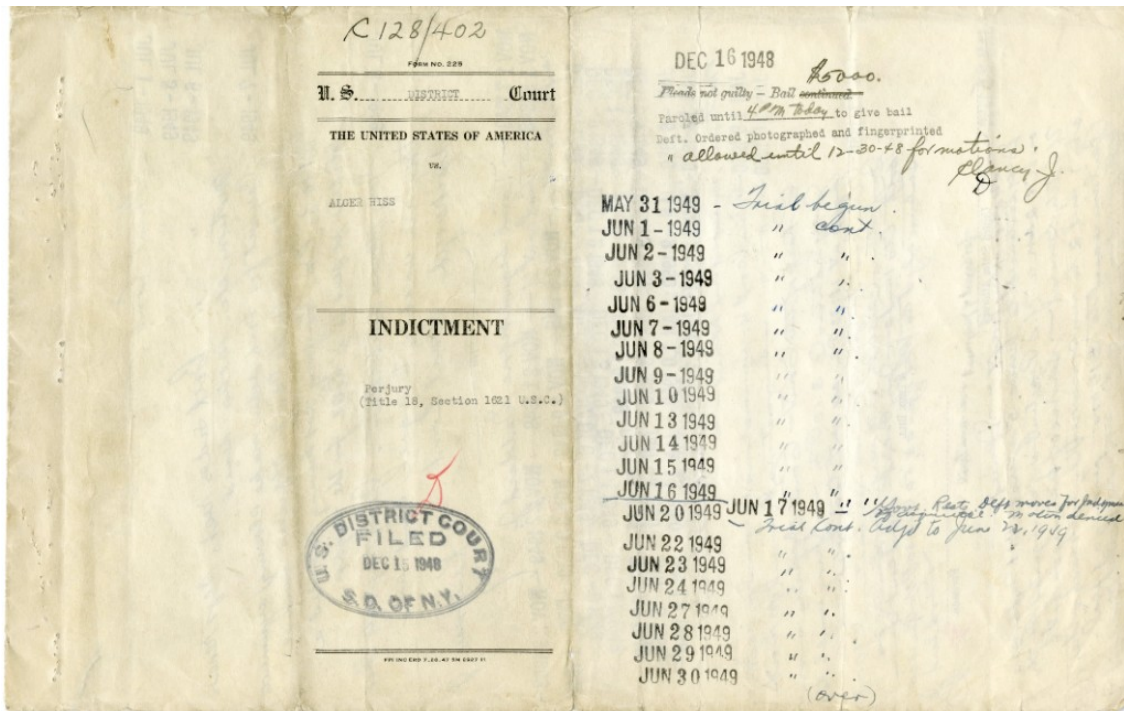 C 128/402
FORM NO. 225
U. S. DISTRICT Court
THE UNITED STATES OF AMERICA
vs.
ALGER HISS
INDICTMENT
Perjury
(Title 18, Section 1621 U.S.C.)
U.S. DISTRICT COURT
FILED
DEC 15 1948
S.D. OF N.Y.
DEC 16 1948
$5000.
Pleads not guilty – Bail continued
Paroled until 4 PM today to give bail
Deft. Ordered photographed and fingerprinted
" allowed until 12-30-48 for motions.
Clancy J.
MAY 31 1949 - Trial begun.
JUN 1 - 1949 " cont.
JUN 2 - 1949 " ".
JUN 3 - 1949 " ".
JUN 6 - 1949 " ".
JUN 7 - 1949 " ".
JUN 8 - 1949 " ".
JUN 9 - 1949 " ".
JUN 10 1949 " ".
JUN 13 1949 " ".
JUN 14 1949 " ".
JUN 15 1949 " ".
JUN 16 1949 " ".
JUN 17 1949 - " " Govt. Rests Deft moves for Judgment
of acquittal. Motion denied
JUN 20 1949 - Trial Cont. Adjd to Jun 22, 1949
JUN 22 1949 " ".
JUN 23 1949 " ".
JUN 24 1949 " ".
JUN 27 1949 " ".
JUN 28 1949 " ".
JUN 29 1949 " ".
JUN 30 1949 " ".
(over)